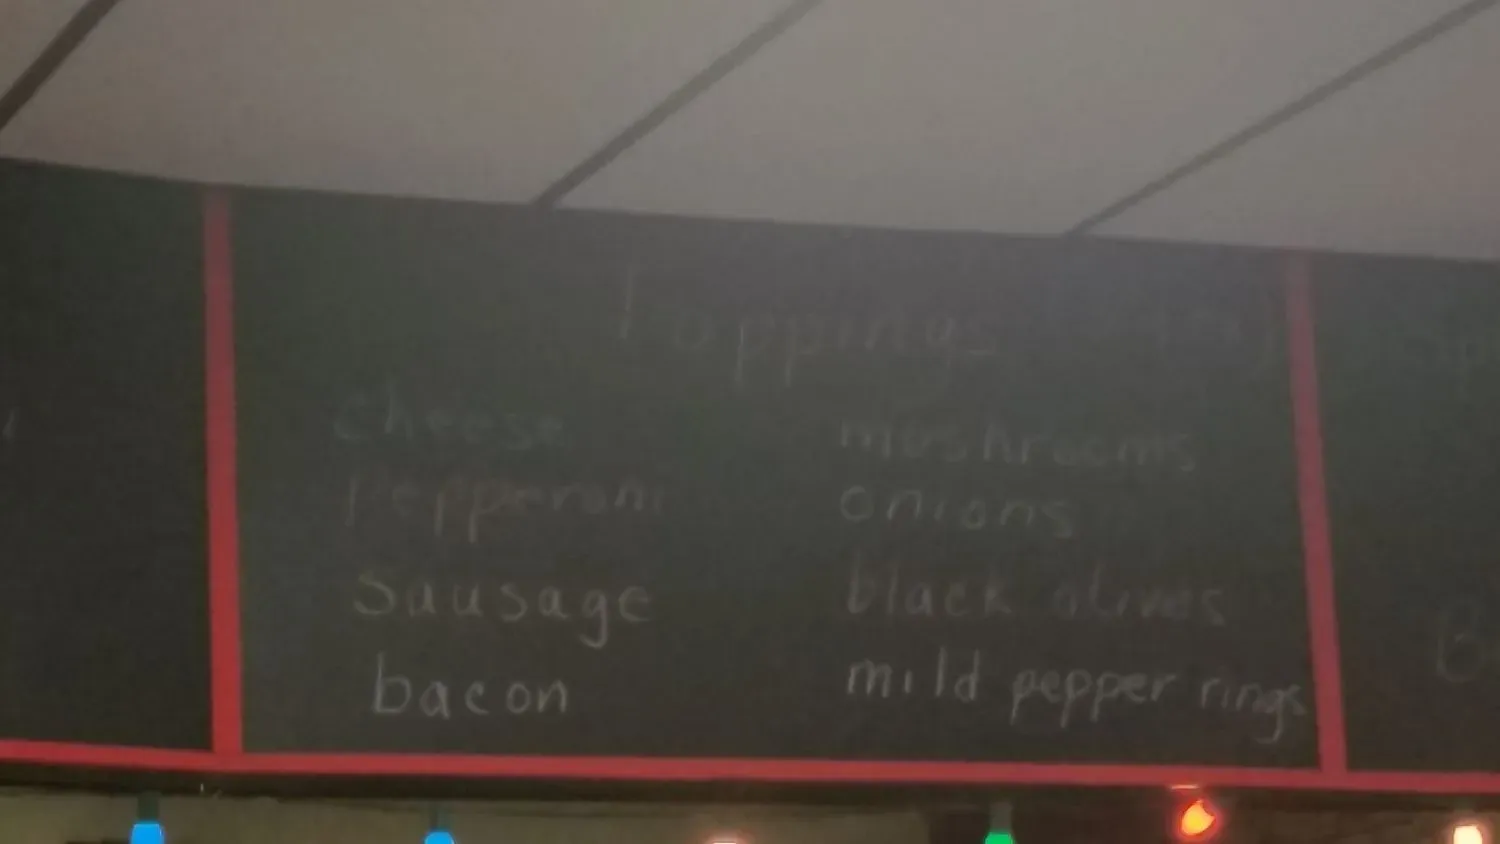 Toppings
cheese
pepperoni
sausage
bacon
mushrooms
onions
black olives
mild pepper rings